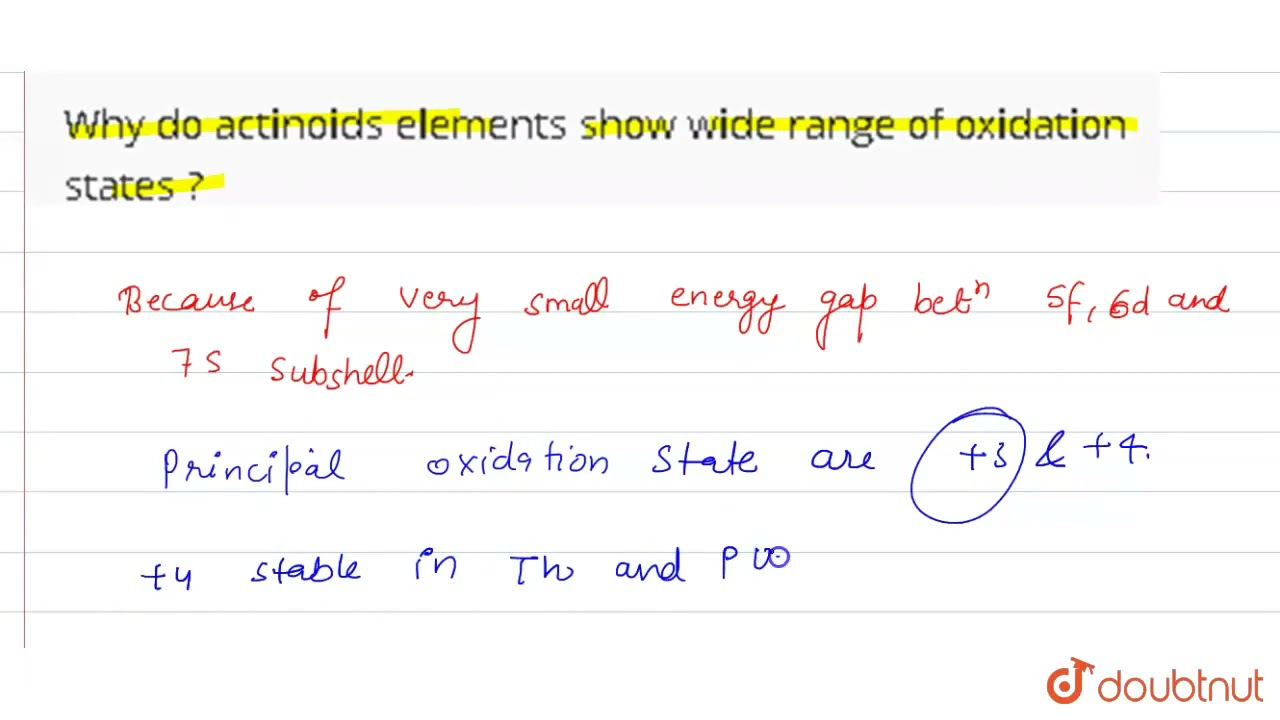 Why do actinoids elements show wide range of oxidation
states ?
Because of very small energy gap betⁿ 5f, 6d and
7s subshell.
Principal oxidation state are +3 & +4.
+4 stable in Th and Pu
doubtnut